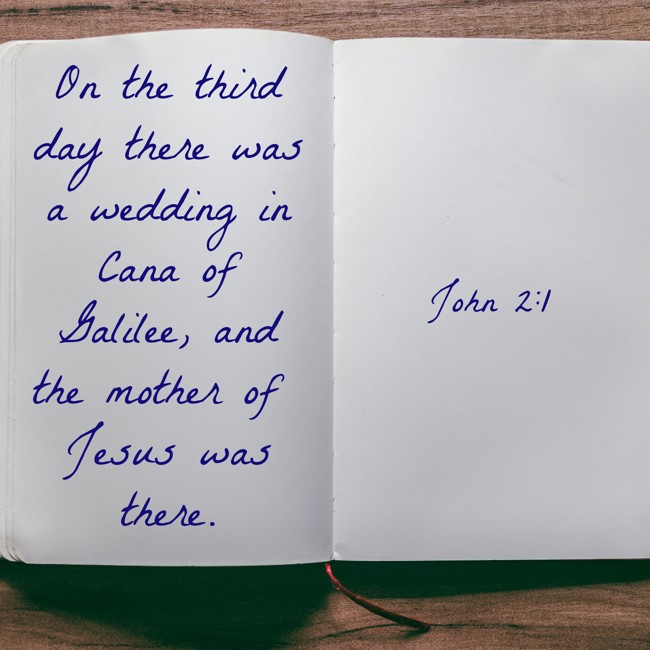 On the third
day there was
a wedding in
Cana of
Galilee, and
the mother of
Jesus was
there.
John 2:1